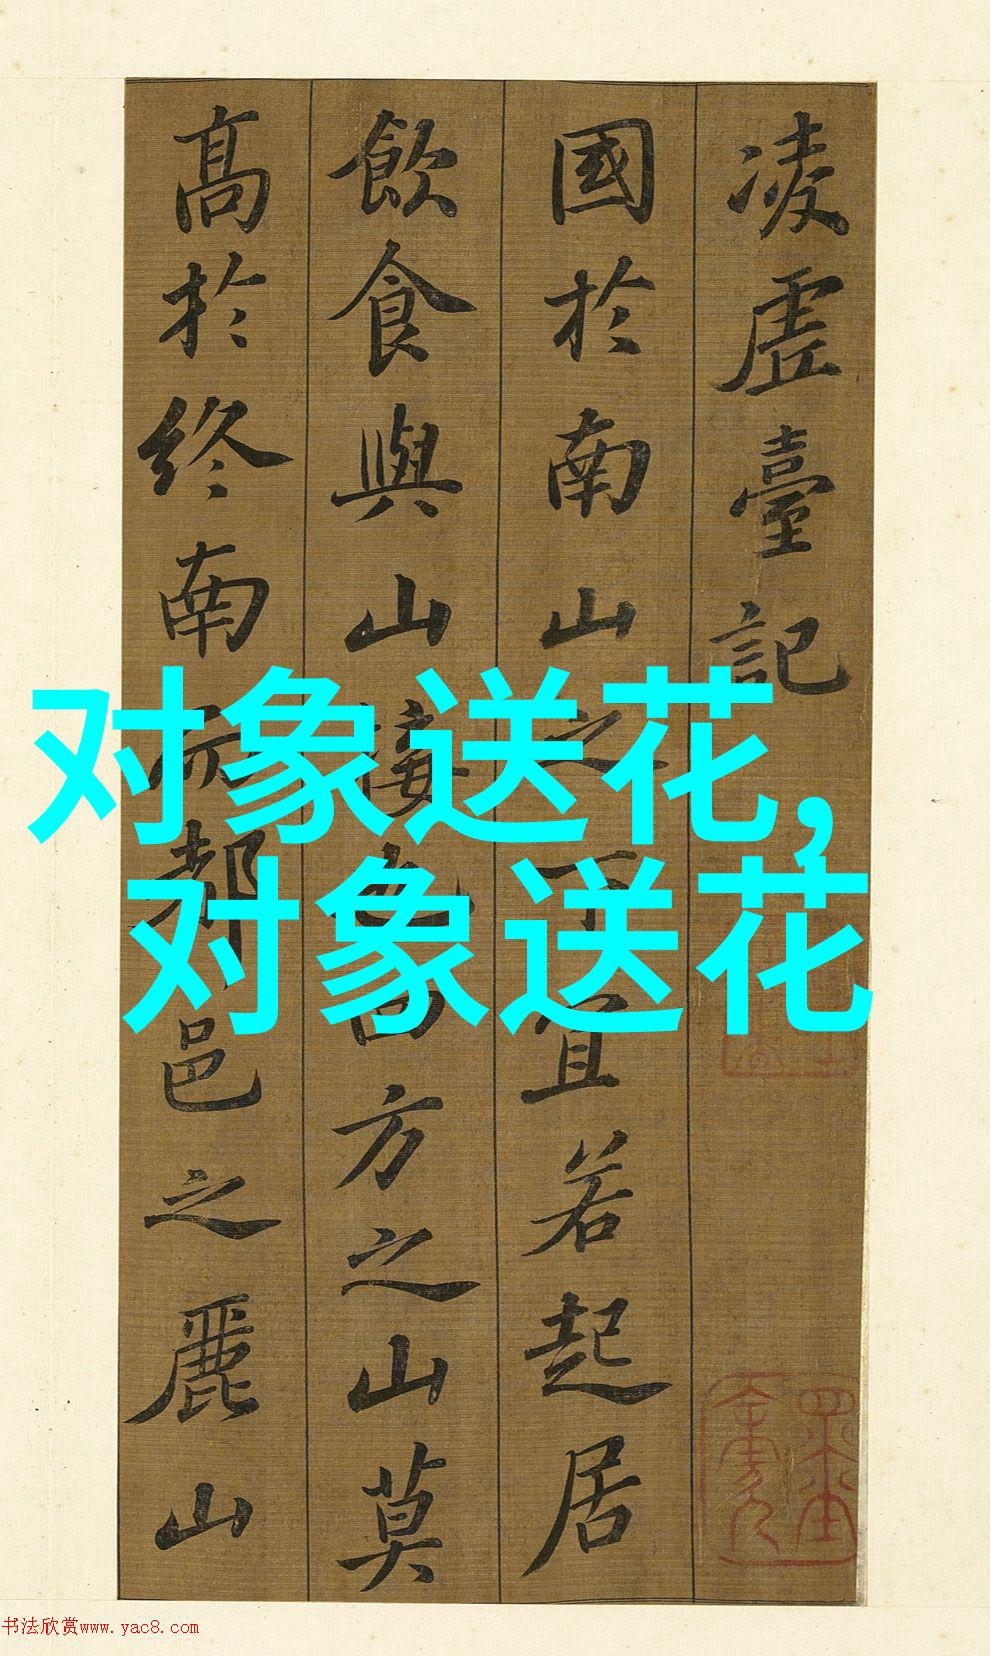 凌虛臺記
國於南山之下宜若起居
飲食與山接也四方之山莫
高於終南而都邑之麗山
对象送花,
对象送花
书法欣赏www.yac8.com